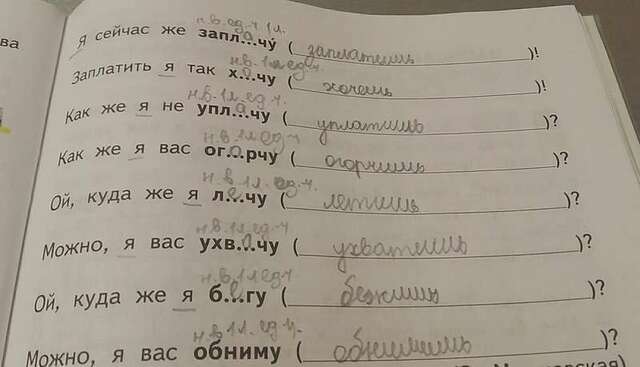 н.в.ед.ч 1л.
Я сейчас же запл...чу́ (заплатешь)!
н.в.1л ед ч.
Заплатить я так х...чу (хочешь)!
н.в.1л.ед.ч.
Как же я не упл...чу (уплатишь)?
н.в 1л ед ч
Как же я вас ог...рчу (огорчишь)?
н.в.1л. ед.ч.
Ой, куда же я л...чу (летишь)?
н.в.1л ед.ч
Можно, я вас ухв...чу (ухватешь)?
н.в.1л ед ч
Ой, куда же я б...гу (бежишь)?
н.в 1л. ед.ч.
Можно, я вас обниму (обнимешь)?